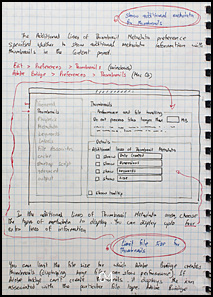 Show additional metadata
for thumbnail
The Additional Lines of Thumbnail Metadata preference
specifies whether to show additional metadata information with
thumbnails in the Content panel.
Edit > Preferences > Thumbnails (Windows)
Adobe Bridge > Preferences > Thumbnails (Mac OS)
Thumbnails
Performance and File Handling
Do not process files larger than MB
Details
Additional Lines of Thumbnail Metadata
Show: Date Created
Show: Dimensions
Show: Keywords
Show:
Show Tooltips
In the Additional Lines of Thumbnail Metadata menu choose
the type of metadata to display. You can display up to four
extra lines of information.
Limit file size for
thumbnails
You can limit the file size for which Adobe Bridge creates
thumbnails (displaying large files can slow performance). If
Adobe Bridge can't create thumbnails it displays the icon
associated with the particular file type. Adobe Bridge